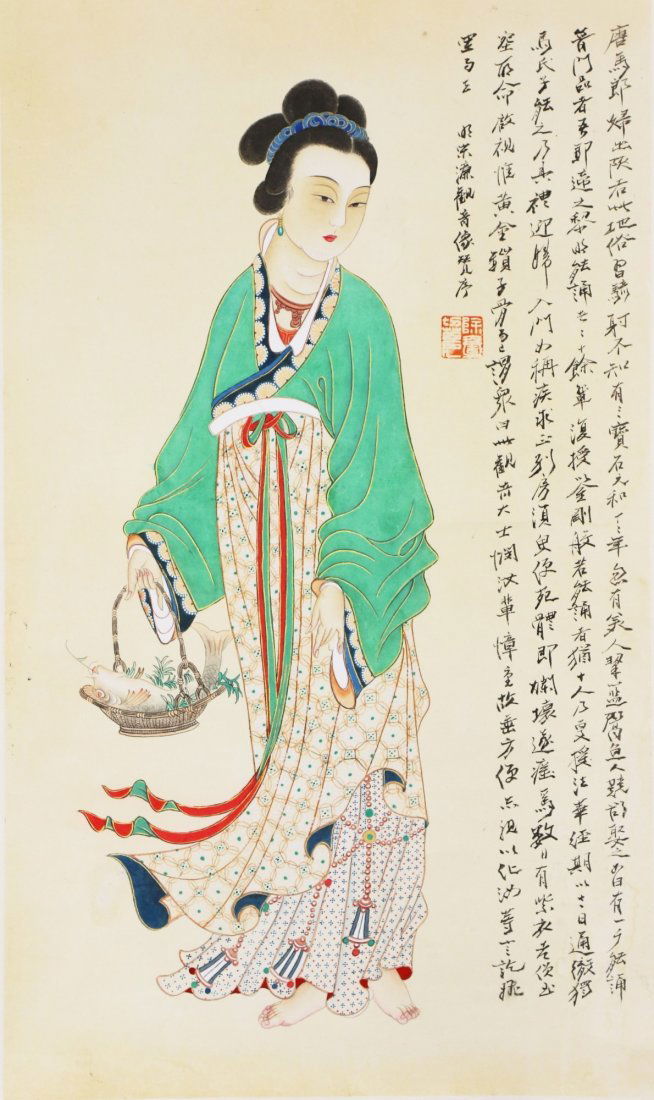 唐馬郎婦出陝右此地俗習騎射不知有三寶元和十二年忽有美人挈籃鬻魚人競欲娶之曰有一夕能誦
普門品者吾即適之黎明能誦者二十餘輩復授以金剛般若能誦者猶十人乃更授法華經期以三日通徹獨
馬氏子能之乃具禮迎婦入門女稱疾求止別房須臾便死體即爛壞遂瘞焉數日有紫衣老僧至
塋所命啟視惟黃金鎖子骨而已謂眾曰此觀音大士憫汝輩障重故垂方便示現以化汝等言訖飛
空而上 明宋濂觀音像贊序